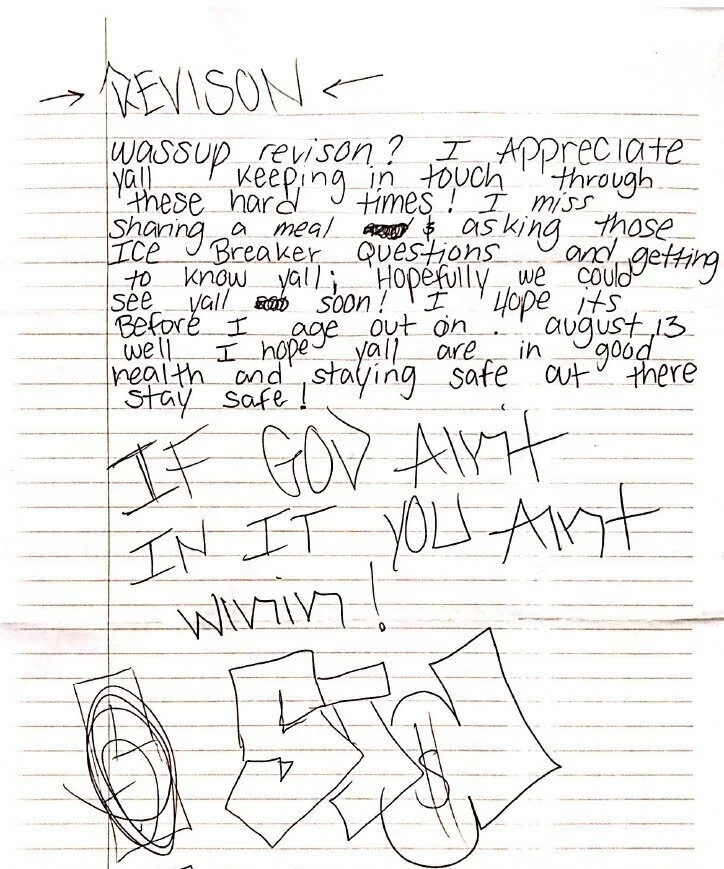 → REVISON ←
wassup revison? I Appreciate
yall keeping in touch through
these hard times! I miss
sharing a meal & asking those
ICE Breaker Questions and getting
to know yall; Hopefully we could
see yall soon! I Hope its
Before I age out on . august 13
well I hope yall are in good
health and staying safe out there
stay safe!
IF GOD Ain't
IN IT YOU Ain't
winin!